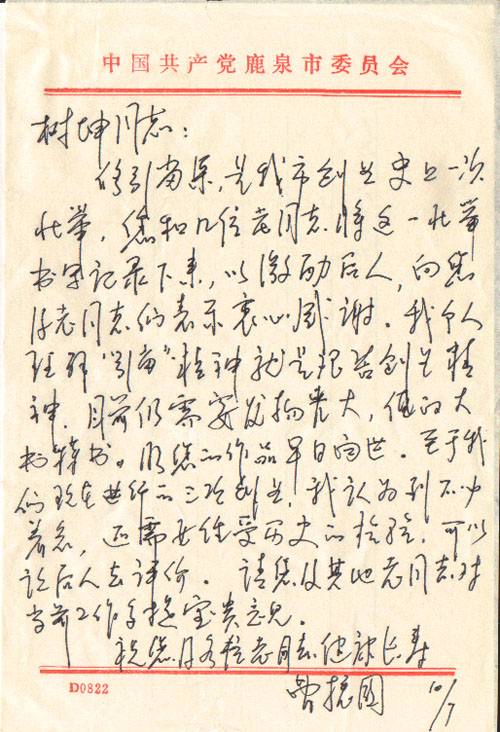 中国共产党鹿泉市委员会
树坤同志：
修引岗渠，是我市创业史上一次
壮举，您和几位老同志将这一壮举
书写记录下来，以激励后人，向您
及老同志们表示衷心感谢。我个人
理解“引岗”精神就是艰苦创业精
神，目前仍需要发扬光大，值得大
书特书。愿您的作品早日问世。至于我
们现在进行的三次创业，我认为到不必
着急，还需要经受历史的检验，可以
让后人去评价。请您及其他老同志对
当前工作多提宝贵意见。
祝您及各位老同志健康长寿
10/7
D0822